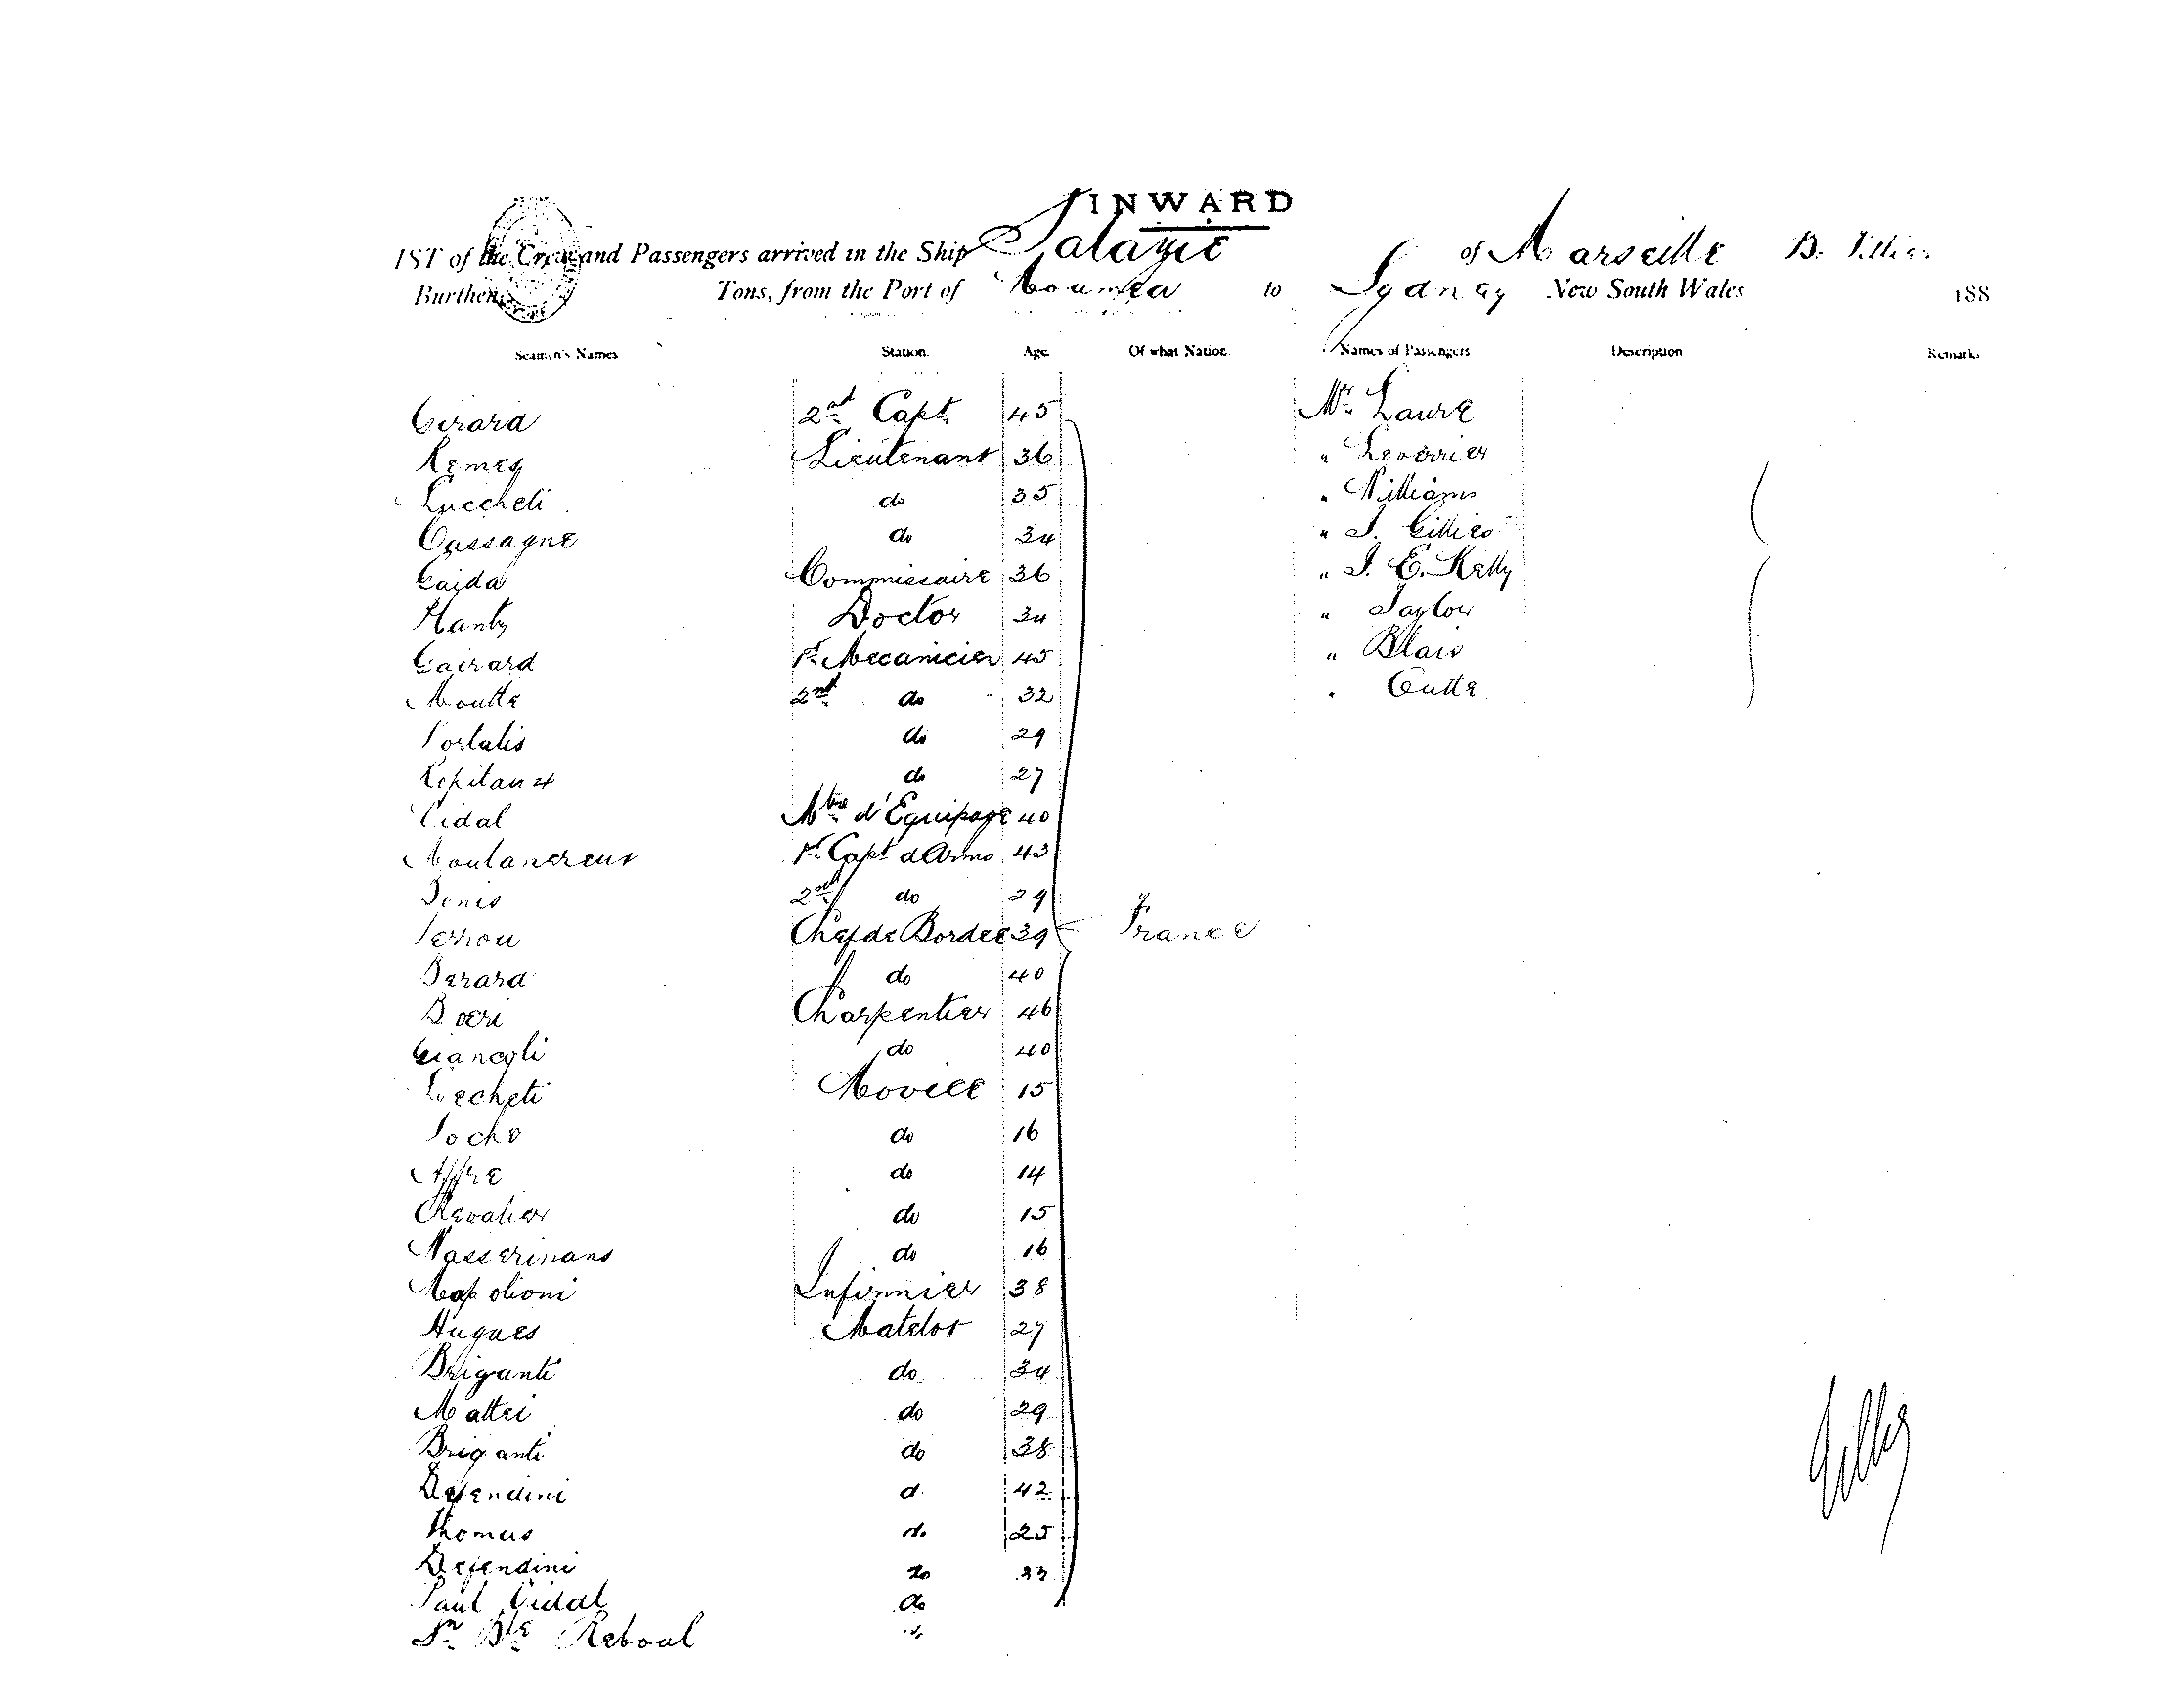 INWARD
IST of the Crew and Passengers arrived in the Ship Salazie of Marseille
Burthen Tons, from the Port of Noumea to Sydney New South Wales 188
Seamen's Names Station. Age. Of what Nation. Names of Passengers Description Remarks
Girard 2nd Capt. 45 Mr. Laure
Remey Lieutenant 36 " Leverrier
Luccheti do 35 " Williams
Cassagne do 34 " J. Gillies
Caida Commissaire 36 " J. E. Kelly
Hantz Doctor 34 " Taylor
Gairard 1r. Mecanicien 45 " Blair
Moutte 2nd do 32 "
Portalis do 29
do 27
Vidal Mtre d'Equipage 40
1r. Capt d'Arme 43
Denis 2nd do 29
Perrou Chef de Bordee 39 France
Berard do 40
Boeri Charpentier 46
Giancoli do 40
Luccheti Novice 15
Pocho do 16
Affre do 14
Chevalier do 15
do 16
Napolioni Infirmier 38
Hugues Matelot 27
Briganti do 34
Mattei do 29
Briganti do 38
Defendini d. 42
Thomas do 25
Defendini do 33
Paul Vidal do
Jn Bte Reboul